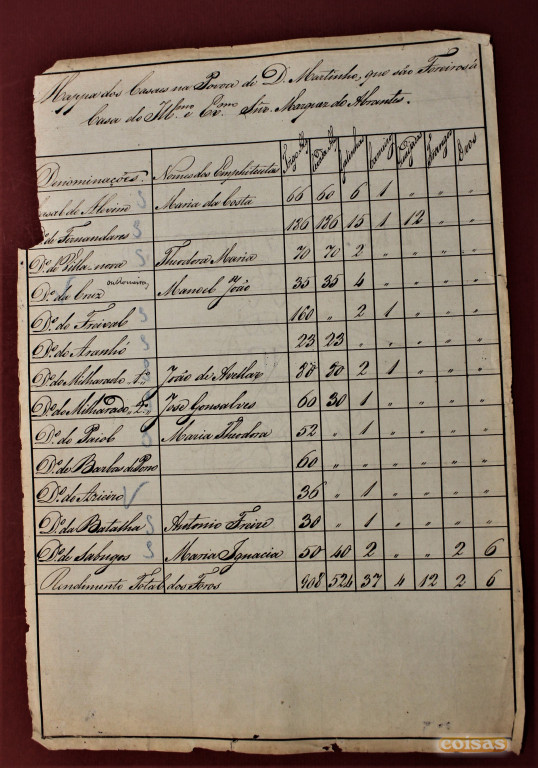 Mappa dos Casaes na Povoa de D. Martinho, que são Foreiros á
Casa do Ill.mo e Ex.mo Snr. Marquez de Abrantes.
Denominações. Nomes dos Emphiteutas Trigo Alq Galinhas Frangos Ovos
Casal de Alvim Maria da Costa 66 60 6 1 " " "
D.º de Fernandares 186 186 15 1 12 " "
D.º de Villa-nova Theodora Maria 70 70 2 " " " "
D.º da Cruz Manoel João 35 35 4 " " " "
D.º do Freixal 160 " 2 1 " " "
D.º do Aranhó 23 23 " " " " "
D.º do Milharado 1.º João de Avellar 88 80 2 1 " " "
D.º do Milharado, 2.º José Gonsalves 60 30 1 " " " "
D.º do Paiol Maria Theodora 52 " 1 " " " "
D.º de Barbas de Porco 60 " " " " " "
D.º do Azieiro 36 " 1 " " " "
D.º da Batalha Antonio Freire 30 " 1 " " " "
D.º de Sabuges Maria Ignacia 50 40 2 " " 2 6
Rendimento Total dos Foros 908 524 37 4 12 2 6
coisas